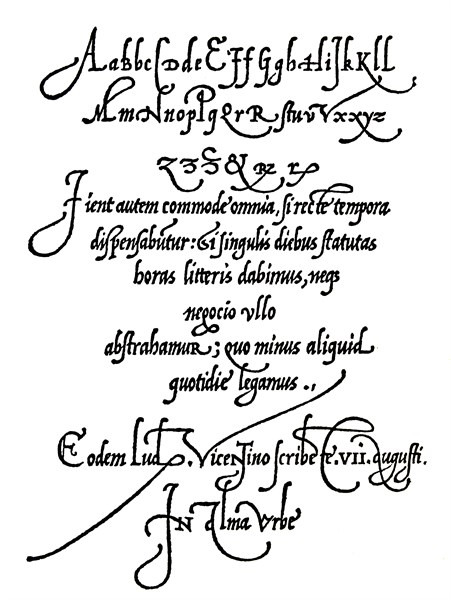 AabbcCDdeEFfGghHiJkKLl
MmNnopPqQrRstuvVxxyz
&
Fient autem commode omnia, si recte tempora
dispensabuntur: Et si singulis diebus statutas
horas litteris dabimus, neqz
negocio vllo
abstrahamuR; quo minus aliquid
quotidie legamus .,
Eodem Lud. Vicentino scribente. VII. augusti.
IN Alma Vrbe